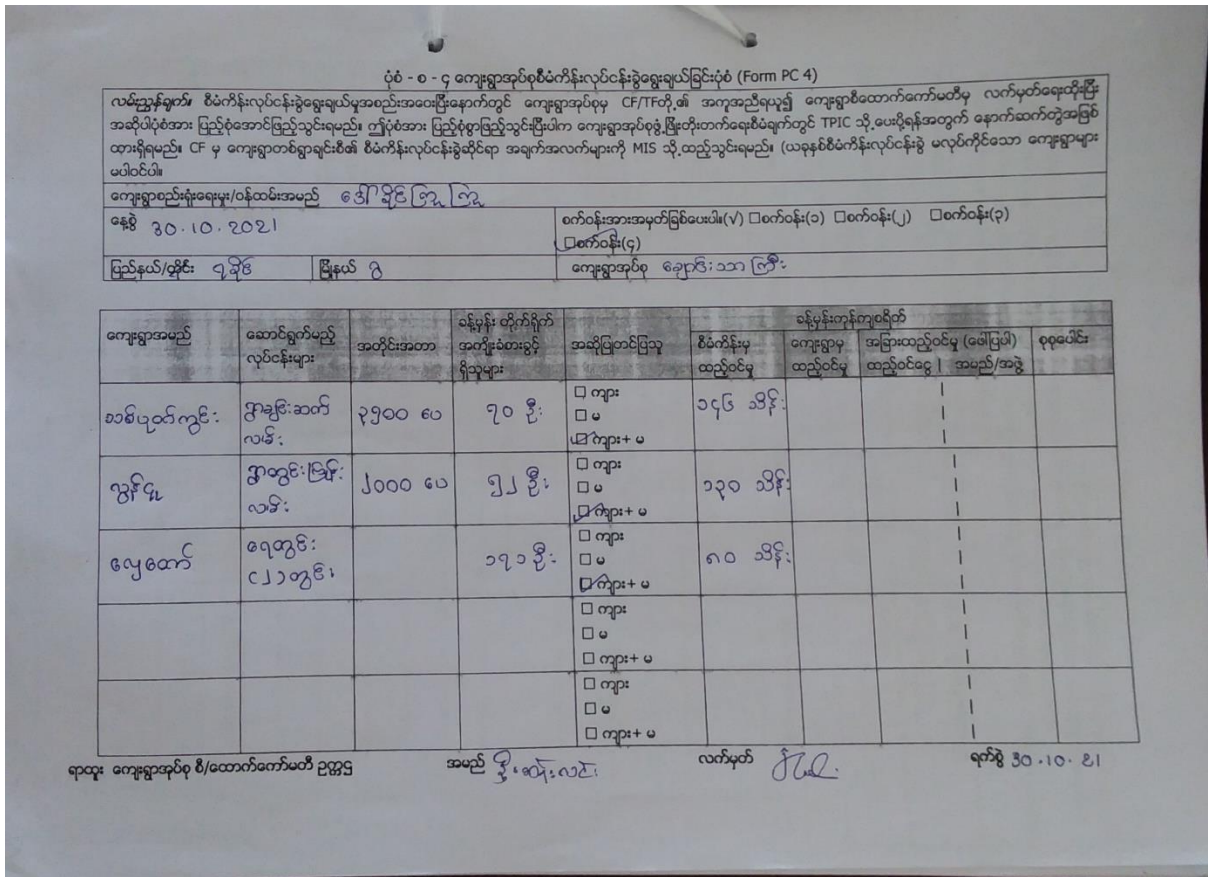 ပုံစံ - စ - ၄ ကျေးရွာအုပ်စုစီမံကိန်းလုပ်ငန်းခွဲရွေးချယ်ခြင်းပုံစံ (Form PC 4)
လမ်းညွှန်ချက်။ စီမံကိန်းလုပ်ငန်းခွဲရွေးချယ်မှုအစည်းအဝေးပြီးနောက်တွင် ကျေးရွာအုပ်စုမှ CF/TFတို့၏ အကူအညီရယူ၍ ကျေးရွာစီထောက်ကော်မတီမှ လက်မှတ်ရေးထိုးပြီး
အဆိုပါပုံစံအား ပြည့်စုံအောင်ဖြည့်သွင်းရမည်။ ဤပုံစံအား ပြည့်စုံစွာဖြည့်သွင်းပြီးပါက ကျေးရွာအုပ်စုဖွံ့ဖြိုးတိုးတက်ရေးစီမံချက်တွင် TPIC သို့ပေးပို့ရန်အတွက် နောက်ဆက်တွဲအဖြစ်
ထားရှိရမည်။ CF မှ ကျေးရွာတစ်ရွာချင်းစီ၏ စီမံကိန်းလုပ်ငန်းခွဲဆိုင်ရာ အချက်အလက်များကို MIS သို့ထည့်သွင်းရမည်။ (ယခုနှစ်စီမံကိန်းလုပ်ငန်းခွဲ မလုပ်ကိုင်သော ကျေးရွာများ
မပါဝင်ပါ။
ကျေးရွာစည်းရုံးရေးမှူး/ဝန်ထမ်းအမည် ဒေါ်ခိုင်ကြူကြူ
နေ့စွဲ 30.10.2021 စက်ဝန်းအားအမှတ်ခြစ်ပေးပါ။(√) □စက်ဝန်း(၁) □စက်ဝန်း(၂) □စက်ဝန်း(၃)
□စက်ဝန်း(၄)
ပြည်နယ်/တိုင်း ရခိုင် မြို့နယ် ဂွ ကျေးရွာအုပ်စု ချောင်းသာကြီး
ခန့်မှန်းကုန်ကျစရိတ်
ကျေးရွာအမည် ဆောင်ရွက်မည့်လုပ်ငန်းများ အတိုင်းအတာ ခန့်မှန်း တိုက်ရိုက်အကျိုးခံစားခွင့်ရှိသူများ အဆိုပြုတင်ပြသူ စီမံကိန်းမှထည့်ဝင်မှု ကျေးရွာမှထည့်ဝင်မှု အခြားထည့်ဝင်မှု (ဖေါ်ပြပါ) ထည့်ဝင်ငွေ | အမည်/အဖွဲ့ စုစုပေါင်း
ရွာချင်းဆက်လမ်း ၃၅၀၀ ပေ ၇၀ ဦး □ ကျား □ မ □ ကျား+ မ ၁၄၆ သိန်း
ရွာတွင်းမြိန်းလမ်း ၂၀၀၀ ပေ ၅၂ ဦး □ ကျား □ မ □ ကျား+ မ ၁၃၀ သိန်း
ရေတွင်း (၂)တွင်း ၁၇၁ ဦး □ ကျား □ မ □ ကျား+ မ ၈၀ သိန်း
□ ကျား
□ မ
□ ကျား+ မ
□ ကျား
□ မ
□ ကျား+ မ
ရာထူး ကျေးရွာအုပ်စု စီ/ထောက်ကော်မတီ ဥက္ကဌ အမည် ဦး လက်မှတ် ရက်စွဲ 30.10.21